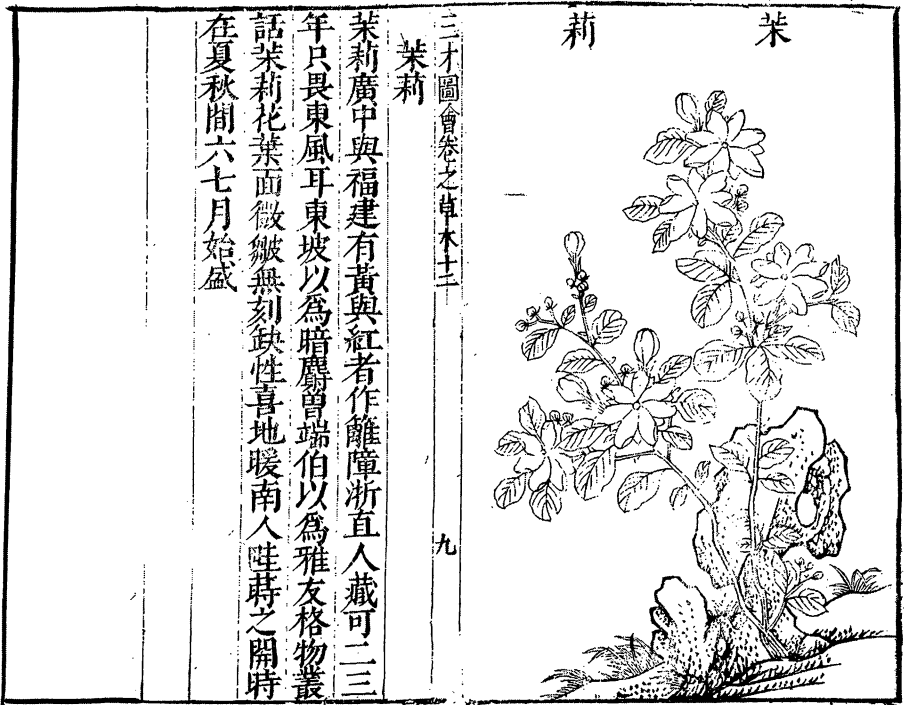 茉莉
三才圖會卷之草木十二 九
茉莉
茉莉廣中與福建有黃與紅者作籬障浙直人藏可二三
年只畏東風耳東坡以爲暗麝曾端伯以爲雅友格物叢
話茉莉花葉面微皺無刻缺性喜地暖南人畦蒔之開時
在夏秋間六七月始盛